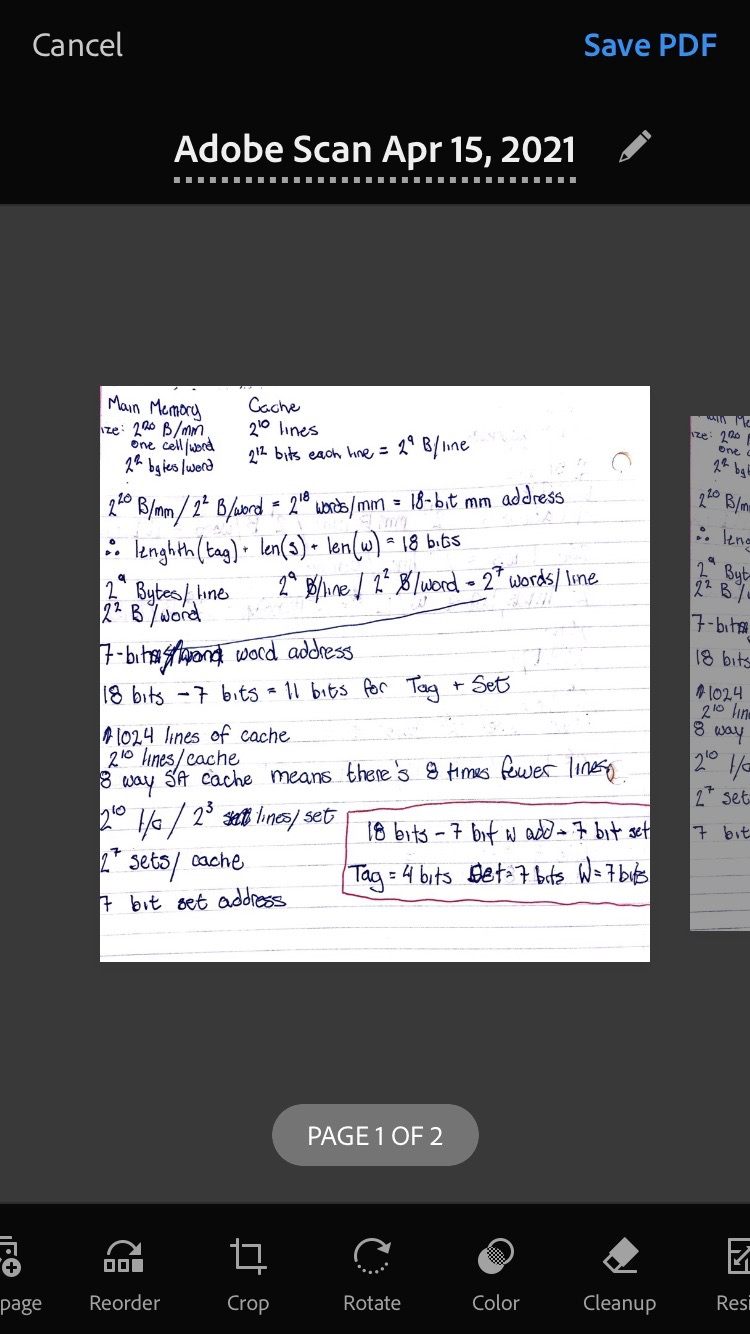 Cancel
Save PDF
Adobe Scan Apr 15, 2021
Main Memory
Cache
ize: 2²⁰ B/mm
2¹⁰ lines
one cell/word
2¹² bits each line = 2⁹ B/line
2² bytes/word
2²⁰ B/mm / 2² B/word = 2¹⁸ words/mm = 18-bit mm address
∴ lenghth(tag) + len(s) + len(w) = 18 bits
2⁹ Bytes/line
2⁹ B/line / 2² B/word = 2⁷ words/line
2² B/word
7-bits word address
18 bits - 7 bits = 11 bits for Tag + Set
1024 lines of cache
2¹⁰ lines/cache
8 way SA cache means there's 8 times fewer lines
2¹⁰ l/c / 2³ lines/set
18 bits - 7 bit w add - 7 bit set
2⁷ sets/cache
Tag = 4 bits Set = 7 bits W = 7 bits
7 bit set address
ize: 2²⁰
one c
2² by
2²⁰ B/m
∴ leng
2⁹ Byt
2² B /
7-bits
18 bits
1024
2¹⁰ lin
8 way
2¹⁰ l/c
2⁷ set
7 bit
PAGE 1 OF 2
page
Reorder
Crop
Rotate
Color
Cleanup
Resi